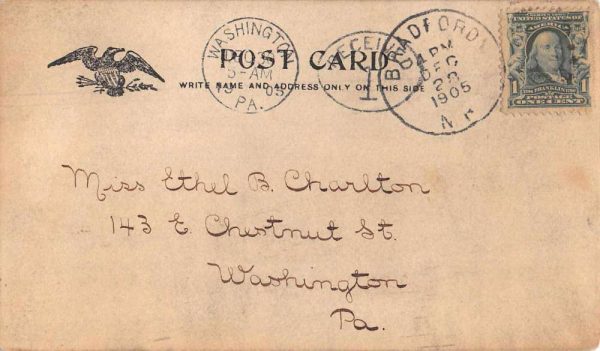 POST CARD
WRITE NAME AND ADDRESS ONLY ON THIS SIDE
WASHINGTON
5-AM
PA.
1
1 PM
DEC
1905
UNITED STATES OF
AMERICA
1 FRANKLIN 1
POSTAGE
ONE CENT
Miss Ethel B. Charlton
143 E Chestnut St.
Washington
Pa.